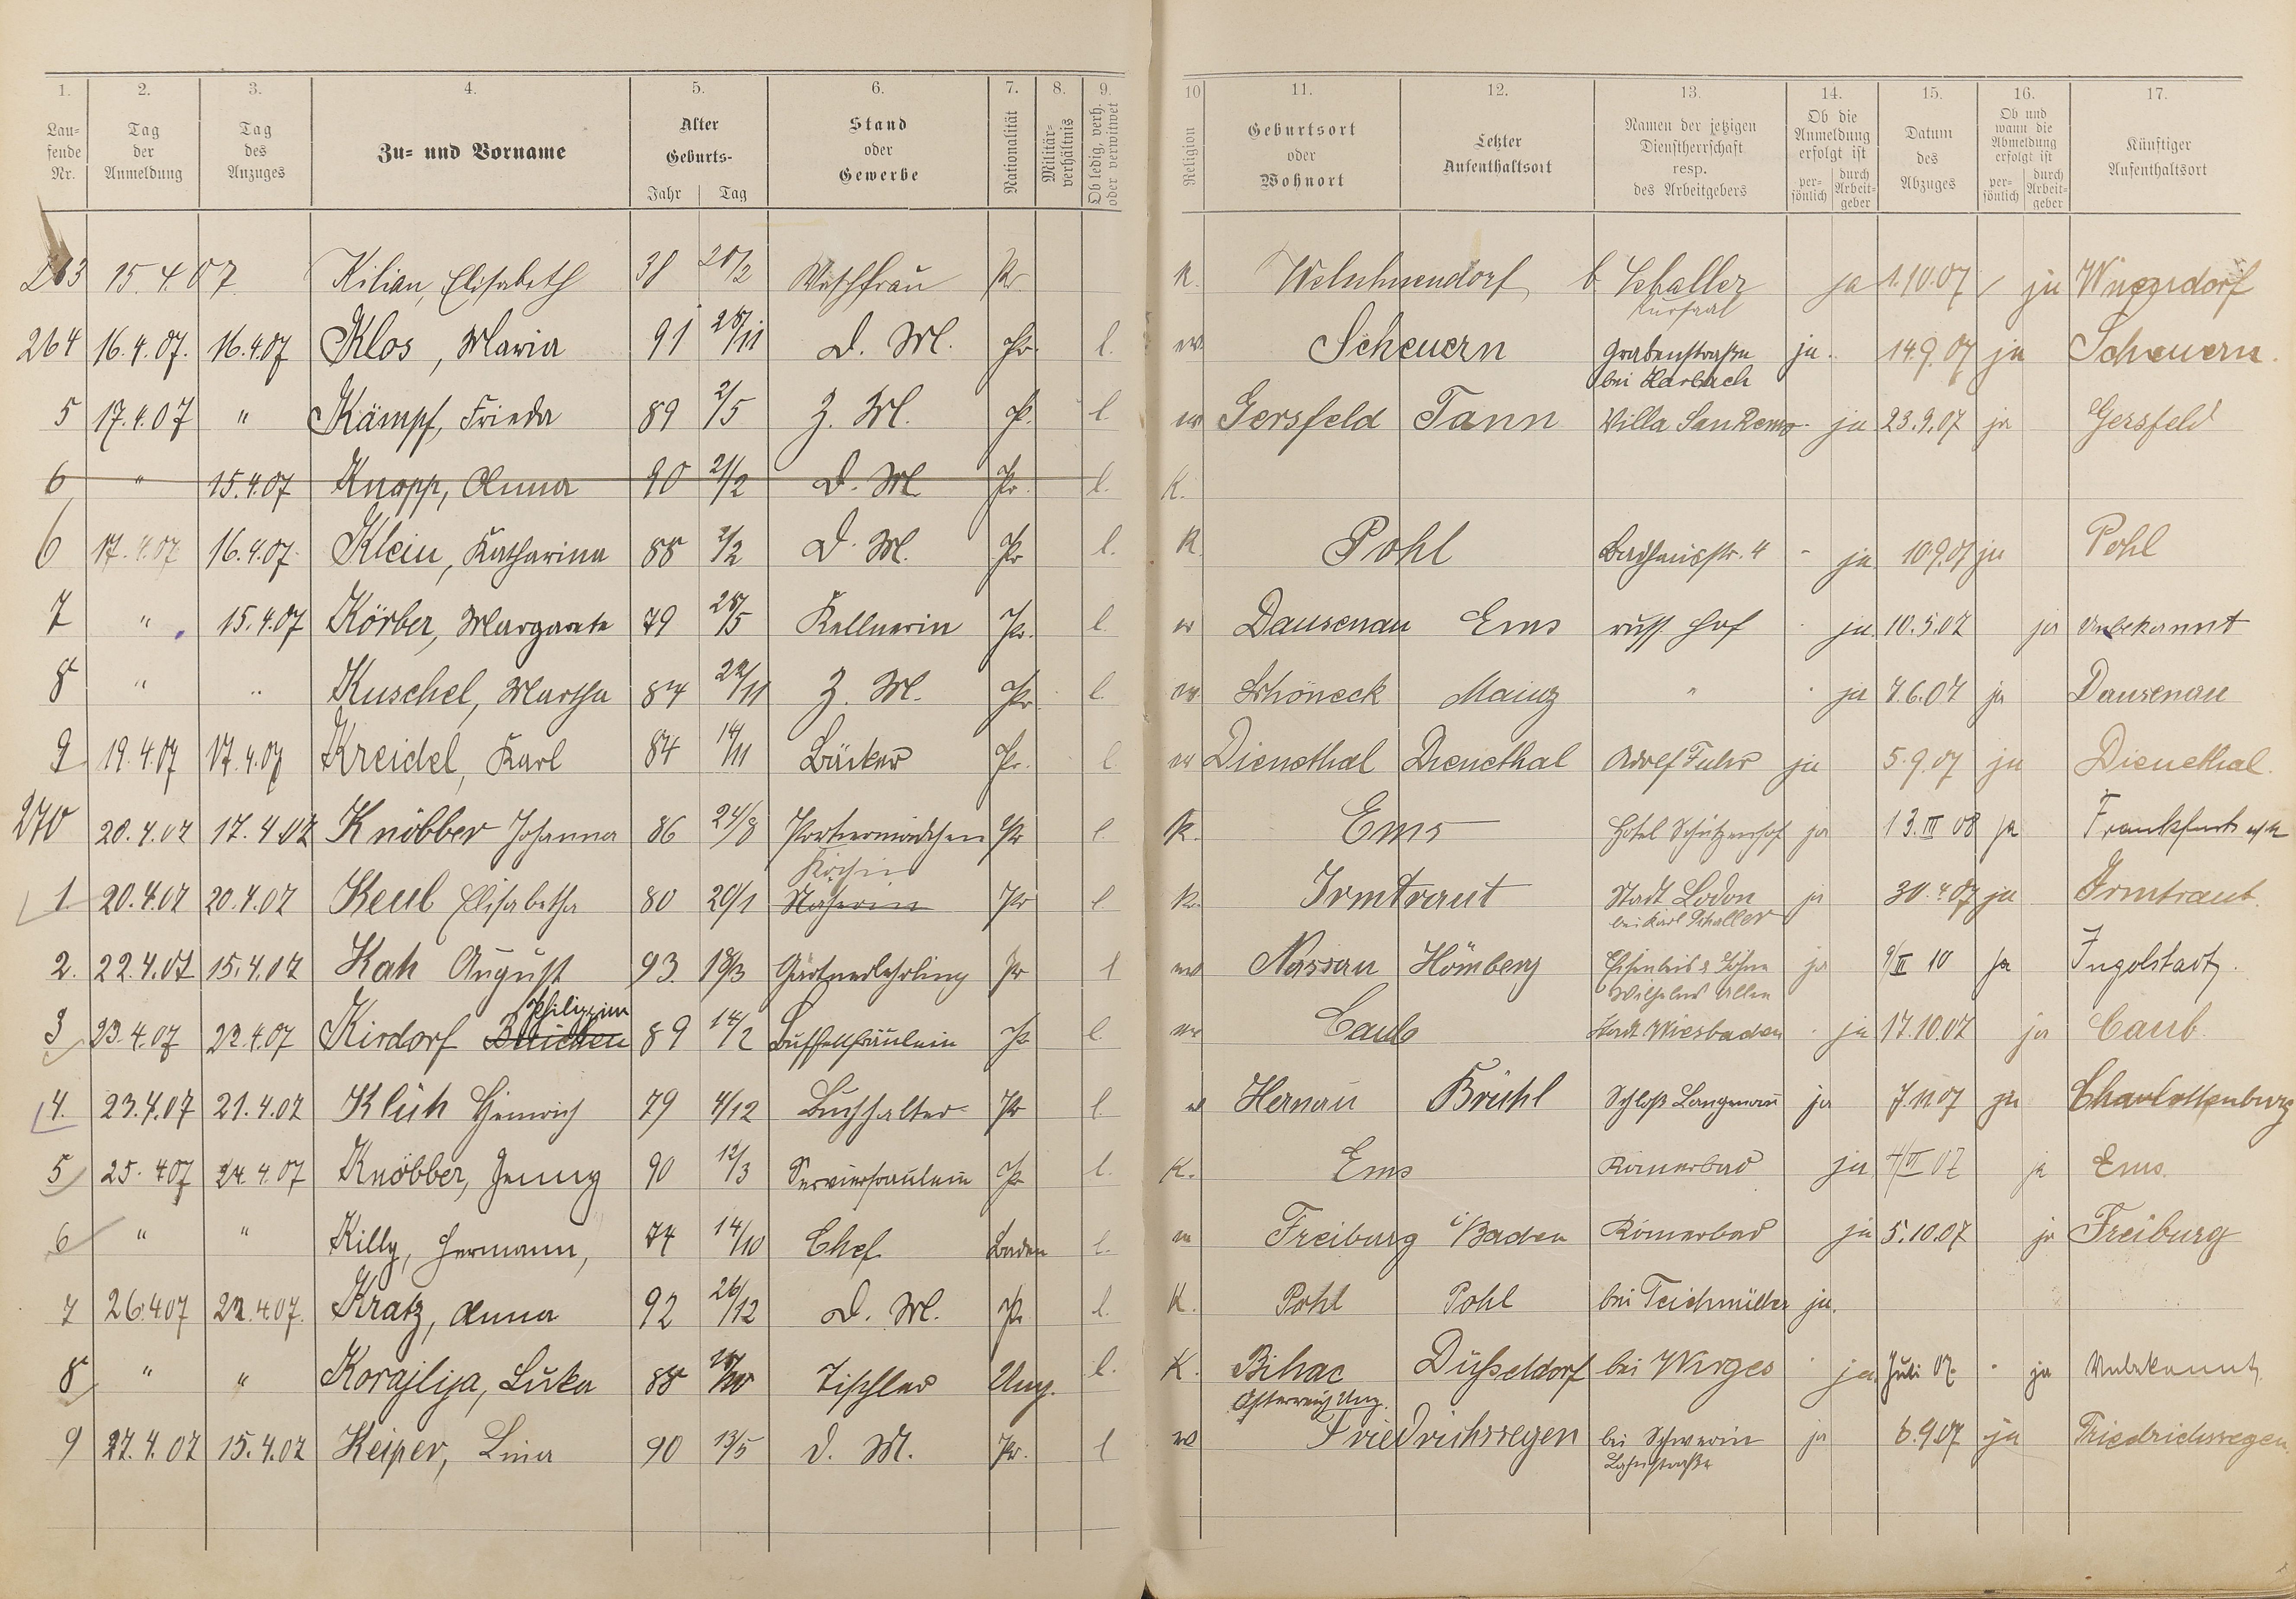 1. 2. 3. 4. 5. 6. 7. 8. 9. 10 11. 12. 13. 14. 15. 16. 17.
Lau-
fende
Nr.
Tag
der
Anmeldung
Tag
des
Anzuges
Zu- und Vorname
Alter
Geburts-
Jahr Tag
Stand
oder
Gewerbe
Nationalität
Militär-
verhältnis
Ob ledig, verh.
oder verwitwet
Religion
Geburtsort
oder
Wohnort
Letzter
Aufenthaltsort
Namen der jetzigen
Dienstherrschaft
resp.
des Arbeitgebers
Ob die
Anmeldung
erfolgt ist
per-
sönlich
durch
Arbeit-
geber
Datum
des
Abzuges
Ob und
wann die
Abmeldung
erfolgt ist
per-
sönlich
durch
Arbeit-
geber
Künftiger
Aufenthaltsort
263 15.4.07. Kilian, Elisabeth 38 20/2 Pr K. b. Schaller ja 1.10.07 ja
Kursaal
264 16.4.07. 16.4.07 Klos, Maria 91 28/11 D. M. Pr. l. ev Scheuern Grabenstraße ja. 14.9.07 ja Scheuern.
bei Harbach
5 17.4.07 " Kämpf, Frieda 89 2/5 Z. M. P. l. ev Gersfeld Tann Villa San Remo ja 23.9.07 ja Gersfeld
6 " 15.4.07 Knopp, Anna 90 21/2 D. M. Pr. l. K.
6 17.4.07 16.4.07. Klein, Katharina 88 2/2 D. M. Pr l. K. Pohl Badhausstr. 4 - ja 10.9.07 ja Pohl
7 " 15.4.07 Körber, Margarete 79 28/5 Kellnerin Pr. l. ev Dausenau Ems russ. Hof ja. 10.5.07 ja Unbekannt
8 " " Kuschel, Martha 84 22/11 Z. M. Pr l. ev Schöneck Mainz " ja 7.6.07 ja Dausenau
9 19.4.07 17.4.07 Kreidel, Karl 84 14/11 Bäcker Pr. l ev Dienethal Dienethal Adolf Fuhr ja 5.9.07 ja Dienethal.
270 20.4.07 17.4.07 Knöbber Johanna 86 24/8 Pr l K. Ems Hotel Schützenhof ja 13.III 08 ja Frankfurt a/M
Köchin
1 20.4.07 20.4.07 Keul Elisabetha 80 20/1 Näherin Pr l K. Irmtraut Stadt Lodon ja 30.4.07 ja Irmtraut.
bei Karl Schaller
2. 22.4.07 15.4.07 Kah August 93. 18/3 Gärtnerlehrling Pr l ev Nassau Hömberg ja ja Ingolstadt.
Wilhelms Allee
Philippine
3 23.4.07 22.4.07 Kirdorf 89 14/2 Buffetfräulein Pr l. ev Caub Stadt Wiesbaden ja 17.10.07 ja Caub.
4. 23.4.07 21.4.07 Klüh Heinrich 79 4/12 Buchhalter Pr l Hernau Brühl Schloß Langenau ja 7.11.07 ja Charlottenburg
5 25.4.07 24.4.07 Knöbber, Jenny 90 12/3 Servierfräulein Pr l. K. Ems Römerbad ja ja Ems.
6 " " Killy, Hermann, 74 14/10 Chef Baden l. Freiburg i/Baden Römerbad ja 5.10.07 ja Freiburg
7 26.4.07 22.4.07. Kratz, Anna 92 26/12 D. M. Pr l. K. Pohl Pohl bei Teichmüller ja.
8 " " Korajlija, Luka 88 Tischler Ung. l. K. Bihac Düsseldorf bei Wirges ja Juli 07. - ja Unbekannt
Österreich Ung.
9 27.4.07 15.4.07 Keiper, Lina 90 13/5 D. M. Pr. l ev Friedrichssegen bei Schwerin ja 6.9.07 ja Friedrichssegen.
Lahnstraße